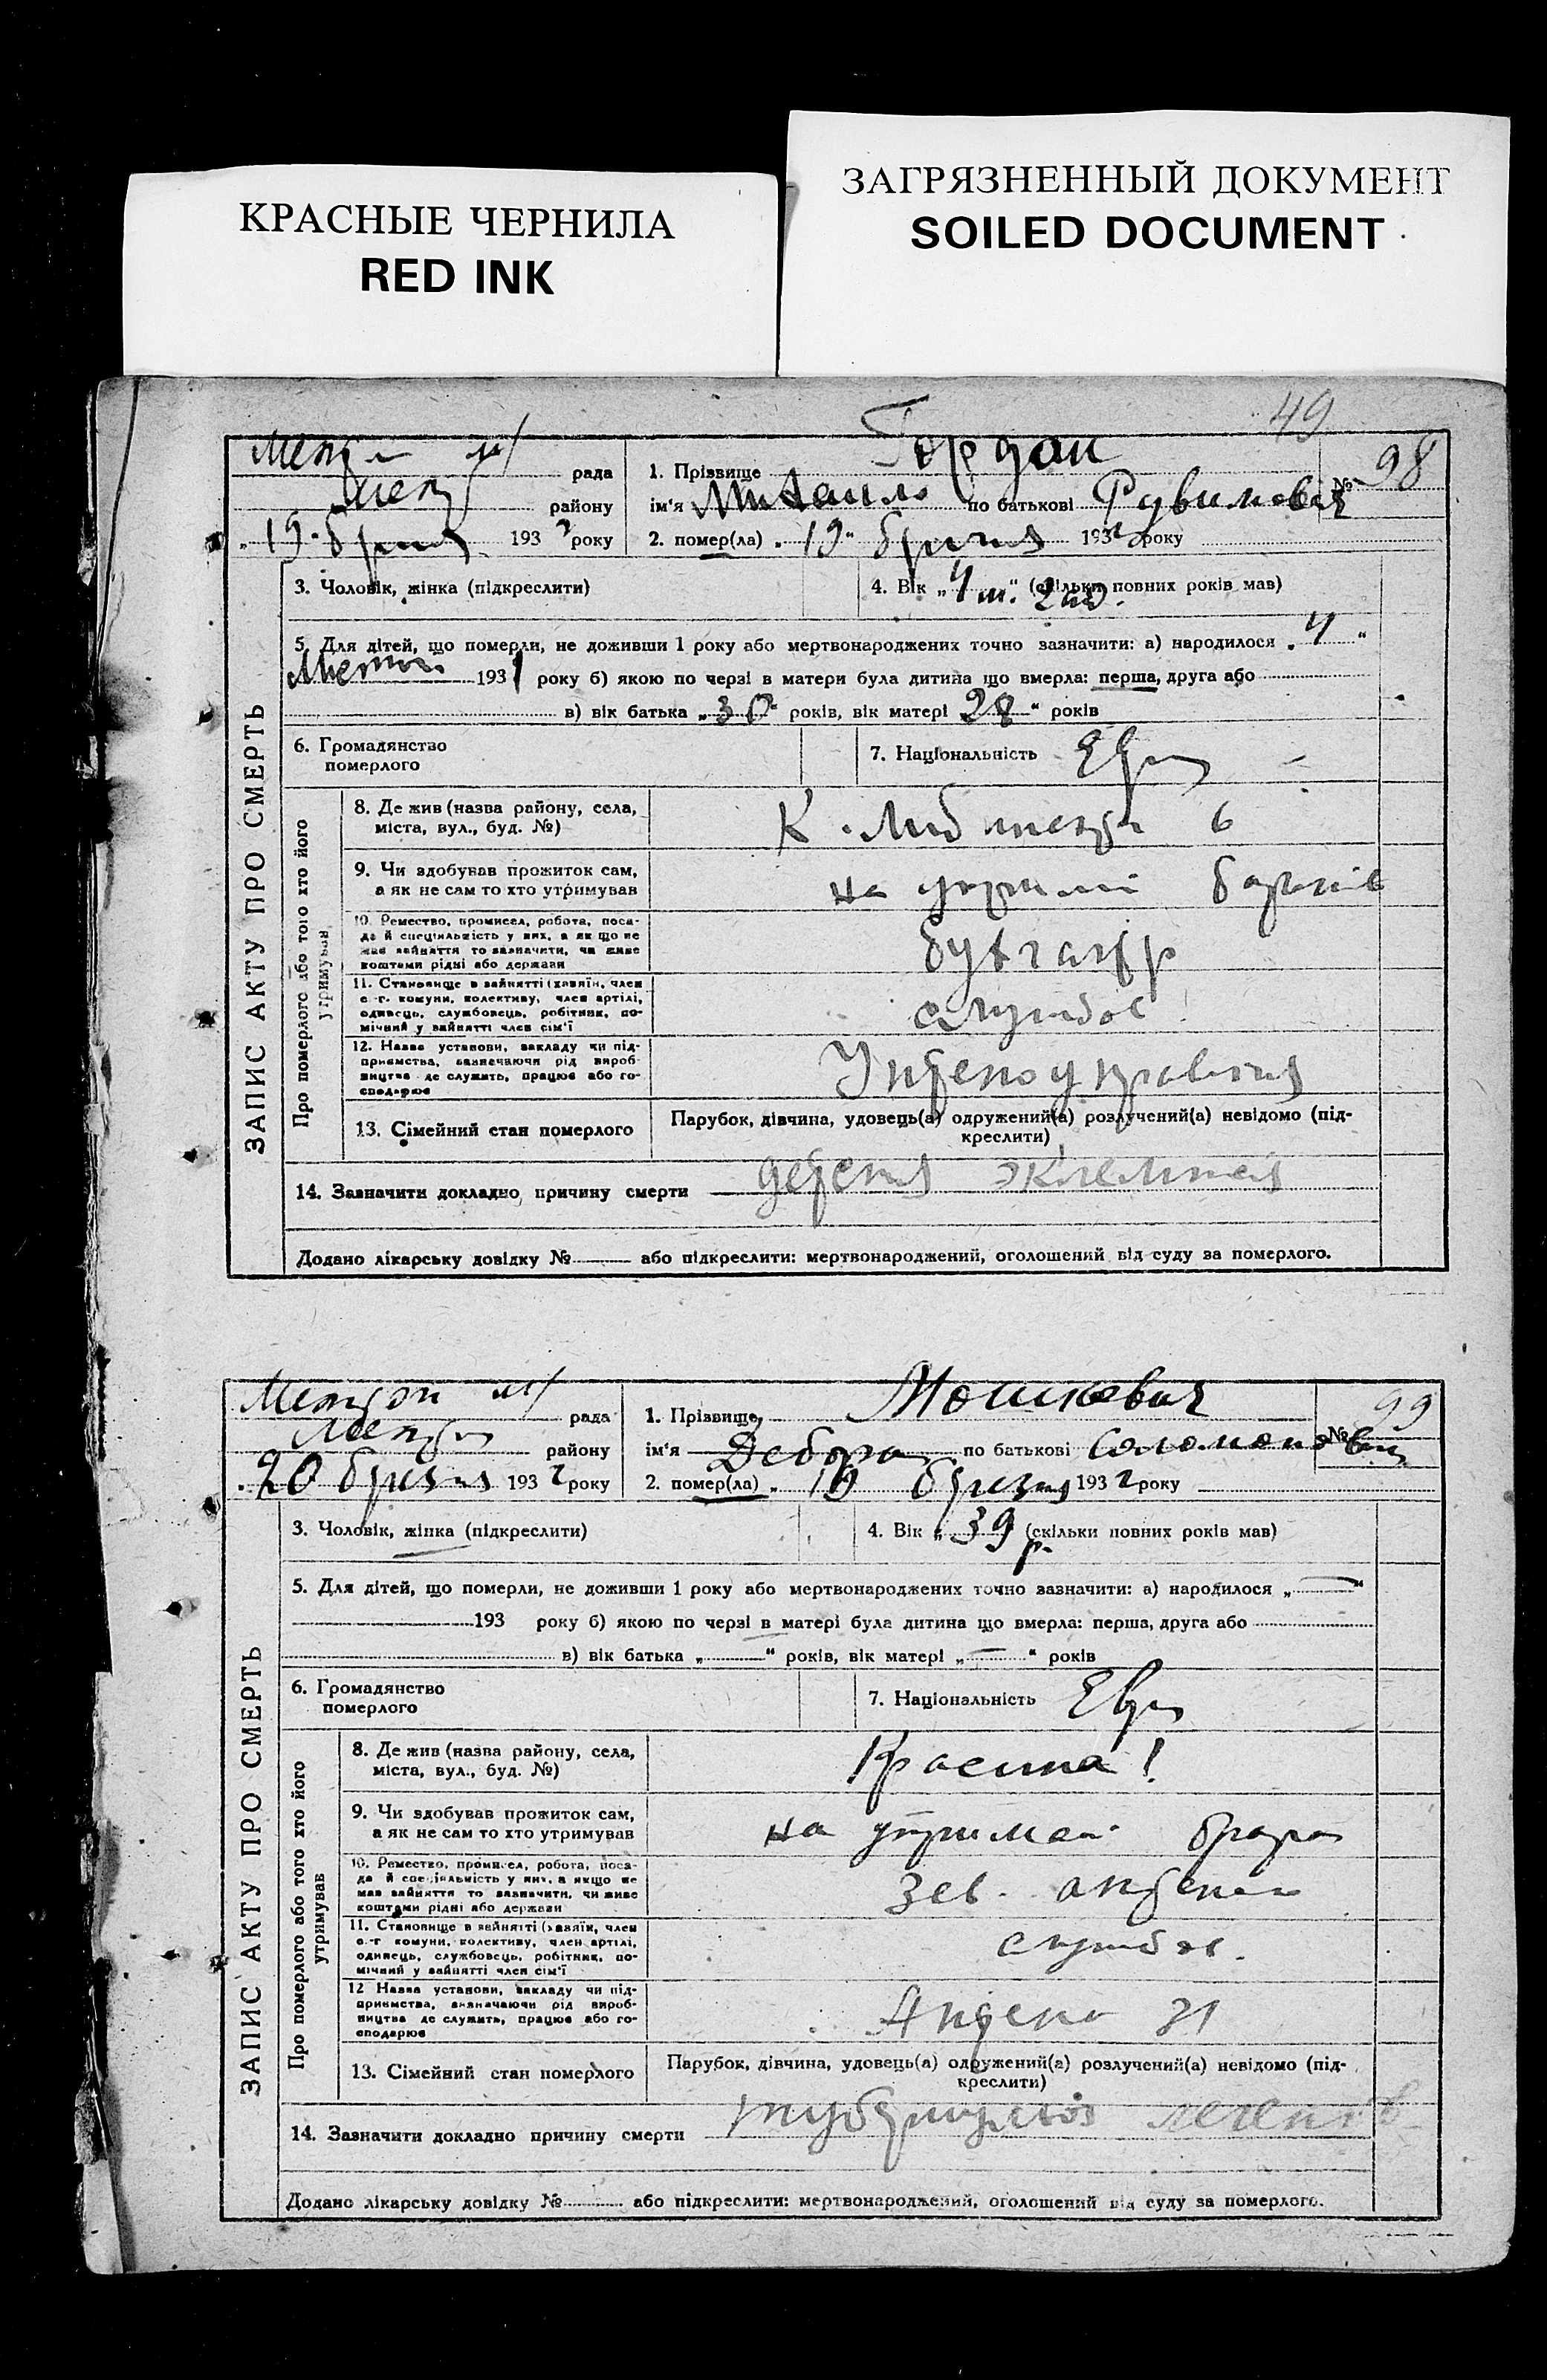 КРАСНЫЕ ЧЕРНИЛА
RED INK
ЗАГРЯЗНЕННЫЙ ДОКУМЕНТ
SOILED DOCUMENT
49
рада
району
"19" 193 2 року
1. Прізвище Гордон
ім'я Михаило по батькові Рувимович
№ 98
2. помер(ла) "19" 1932 року
ЗАПИС АКТУ ПРО СМЕРТЬ
3. Чоловік, жінка (підкреслити)
4. Вік „ " (скільки повних років мав)
5. Для дітей, що померли, не доживши 1 року або мертвонароджених точно зазначити: а) народилося „4"
1931 року б) якою по черзі в матери була дитина що вмерла: перша, друга або
в) вік батька „30" років, вік матері 28" років
6. Громадянство
померлого
7. Національність Євр
Про померлого або того хто його
утримував
8. Де жив (назва району, села,
міста, вул., буд. №)
6
9. Чи здобував прожиток сам,
а як не сам то хто утримував
на батьків
10. Ремество, промисел, робота, поса-
да й спеціяльність у них, а як що не
мав зайняття то зазначити, чи живе
коштами рідні або держави
бухгалтер
11. Становище в зайнятті (хазяїн, член
с.-г. комуни, колективу, член артілі,
одинець, службовець, робітник, по-
мічний у зайнятті член сім'ї
службов
12. Назва установи, закладу чи під-
приємства, зазначаючи рід вироб-
ництва де служить, працює або го-
сподарює
13. Сімейний стан померлого
Парубок, дівчина, удовець(а) одружений(а) розлучений(а) невідомо (під-
креслити)
14. Зазначити докладно причину смерти
Додано лікарську довідку № або підкреслити: мертвонароджений, оголошений від суду за померлого.
рада
району
"20 березня 193 2 року
1. Прізвище Мошкович
ім'я Дебора по батькові Соломоновна
№ 99
2. помер(ла) „19 березня 193 2 року
ЗАПИС АКТУ ПРО СМЕРТЬ
3. Чоловік, жінка (підкреслити)
4. Вік „ 39 р. (скільки повних років мав)
5. Для дітей, що померли, не доживши 1 року або мертвонароджених точно зазначити: а) народилося „—"
193 року б) якою по черзі в матері була дитина що вмерла: перша, друга або
в) вік батька „ " років, вік матері „ " років
6. Громадянство
померлого
7. Національність Євр
Про померлого або того хто його
утримував
8. Де жив (назва району, села,
міста, вул., буд. №)
9. Чи здобував прожиток сам,
а як не сам то хто утримував
на утриман брата
10. Ремество, промисел, робота, поса-
да й спеціяльність у них, а якщо не
мав зайняття то зазначити, чи живе
коштами рідні або держави
Зав. аптекою
11. Становище в зайнятті (хазяїн, член
с.-г комуни, колективу, член артілі,
одинець, службовець, робітник, по-
мічний у зайнятті член сім'ї
службов.
12 Назва установи, закладу чи під-
приємства, зазначаючи рід вироб-
ництва де служить, працює або го-
сподарює
Аптека 31
13. Сімейний стан померлого
Парубок, дівчина, удовець(а) одружений(а) розлучений(а) невідомо (під-
креслити)
14. Зазначити докладно причину смерти туберкульоз легенів
Додано лікарську довідку № або підкреслити: мертвонароджений, оголошений від суду за померлого.